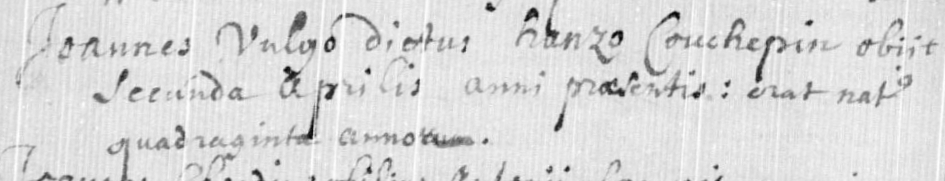 Joannes Vulgo dictus hanzo Couchepin obiit
secunda Aprilis anni præsentis: erat nat⁹
quadraginta annorum.